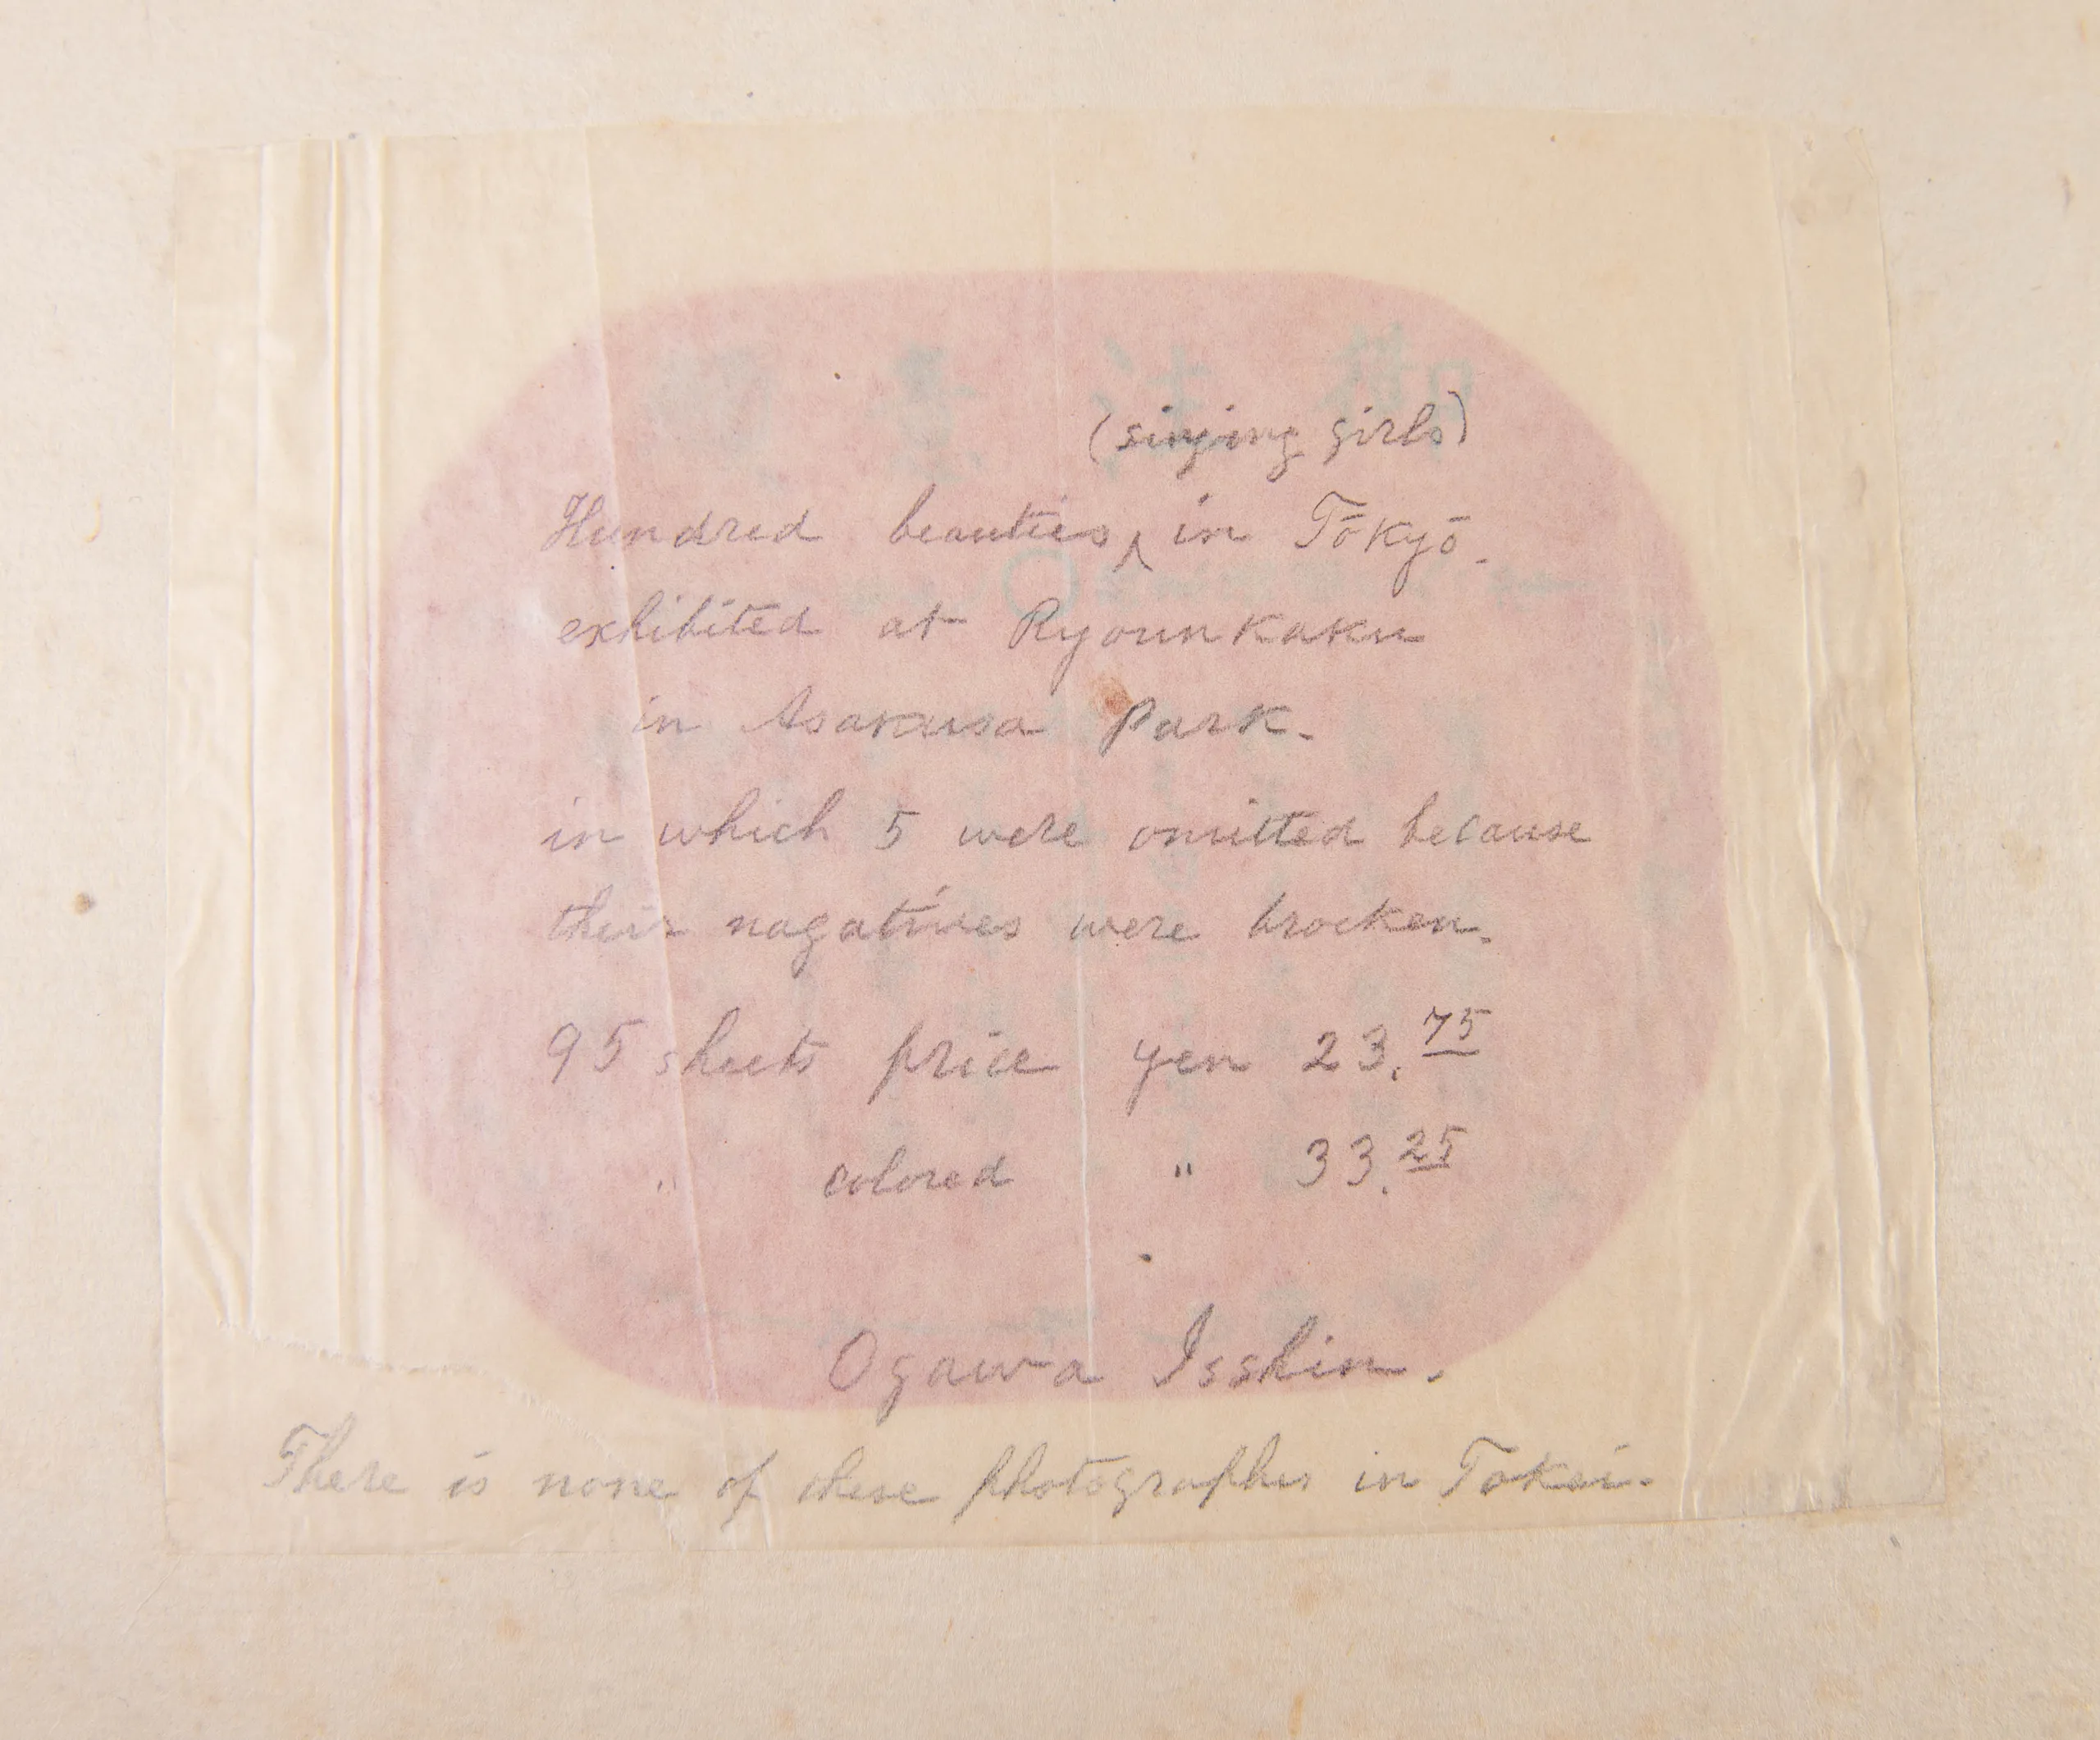 (singing girls)
Hundred beauties ^ in Tōkyō.
exhibited at Ryounkaku
in Asakusa Park.
in which 5 were omitted because
their nagatives were brocken.
95 sheets price yen 23.75
" colored " 33.25
Ogawa Isshin.
There is none of these photographs in